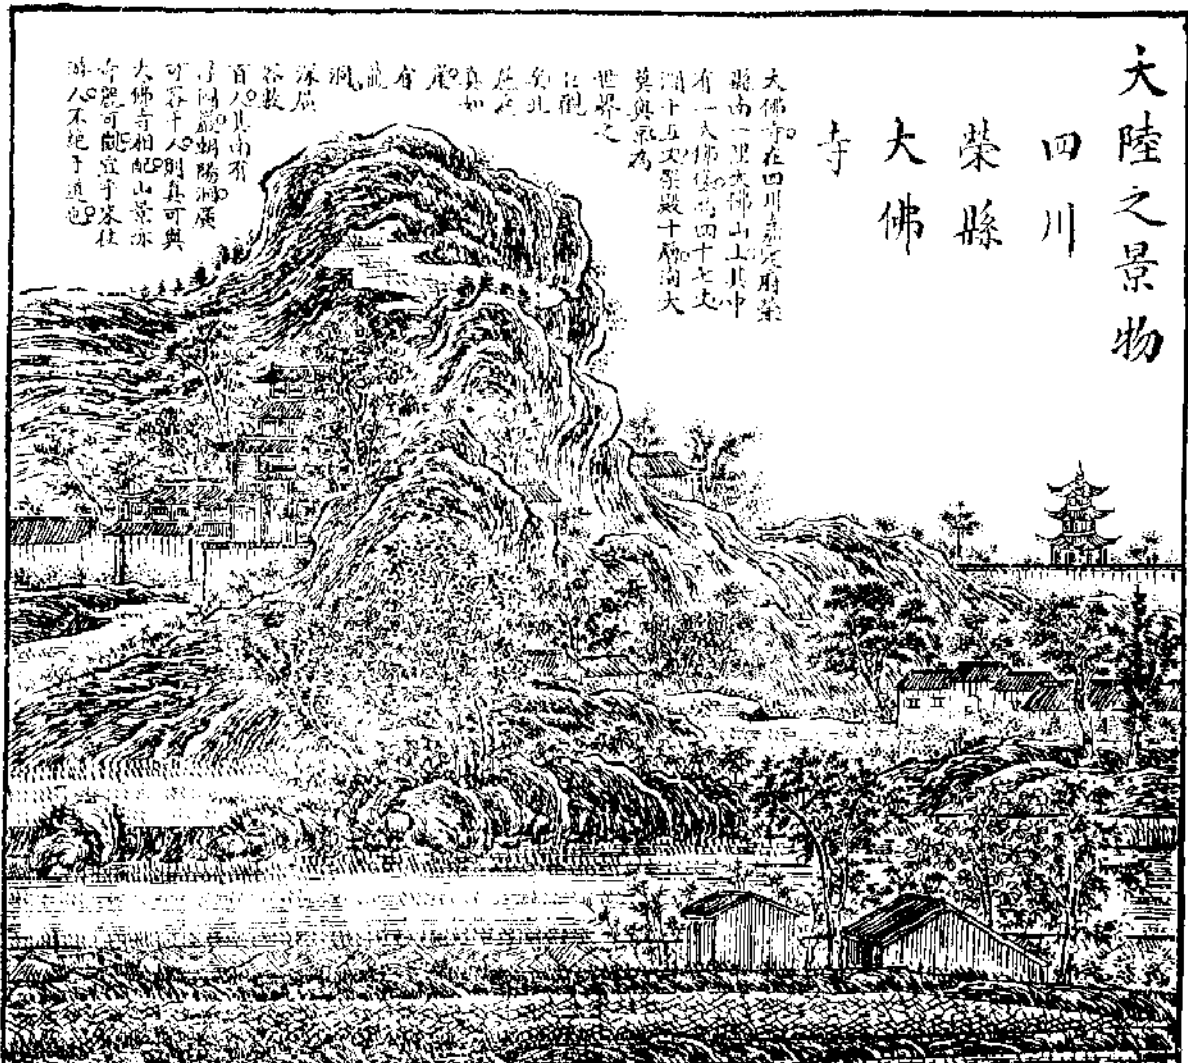 大陸之景物
四川
榮縣
大佛
寺
大佛寺在四川嘉定府榮
縣南一里大佛山上其中
有一大佛。高四十七丈
濶十五丈。殿十層濶大
莫與京為
世界之
巨觀
矣北

真如
巖有
龍
洞
深廣
容數
百人其南有
洞巖蝴陽洞廣
可容千人則真可與
大佛寺相配山景亦
奇麗可觀宜乎來往
游人不絕于道也